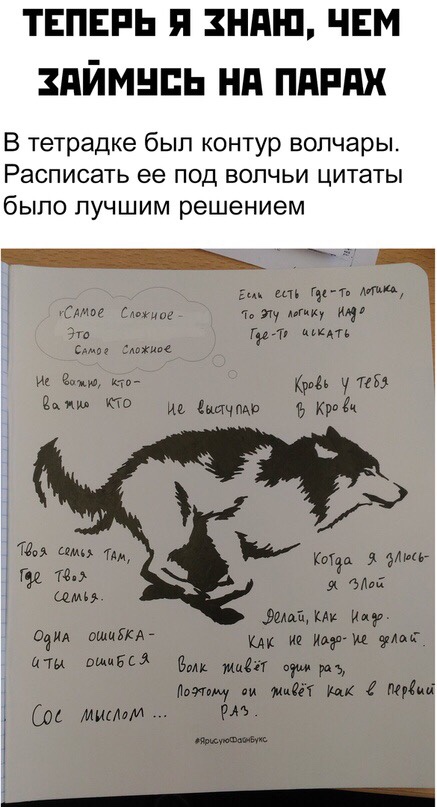 ТЕПЕРЬ Я ЗНАЮ, ЧЕМ
ЗАЙМУСЬ НА ПАРАХ
В тетрадке был контур волчары.
Расписать ее под волчьи цитаты
было лучшим решением
Самое Сложное -
Это
Самое Сложное
Если есть Где-то логика,
То Эту логику Надо
Где-то искать
Не важно, кто -
Важно КТО
Не выступаю
Кровь у Тебя
В Крови
Твоя семья Там,
Где Твоя
Семья.
Когда я злюсь-
я Злой
Делай, как Надо.
Как не Надо- Не делай.
Одна ошибка -
и ты ошибся
Волк живёт один раз,
Поэтому он живёт как в Первый
РАЗ.
Сос мыслом ...
#ЯрисуюФайнБукс